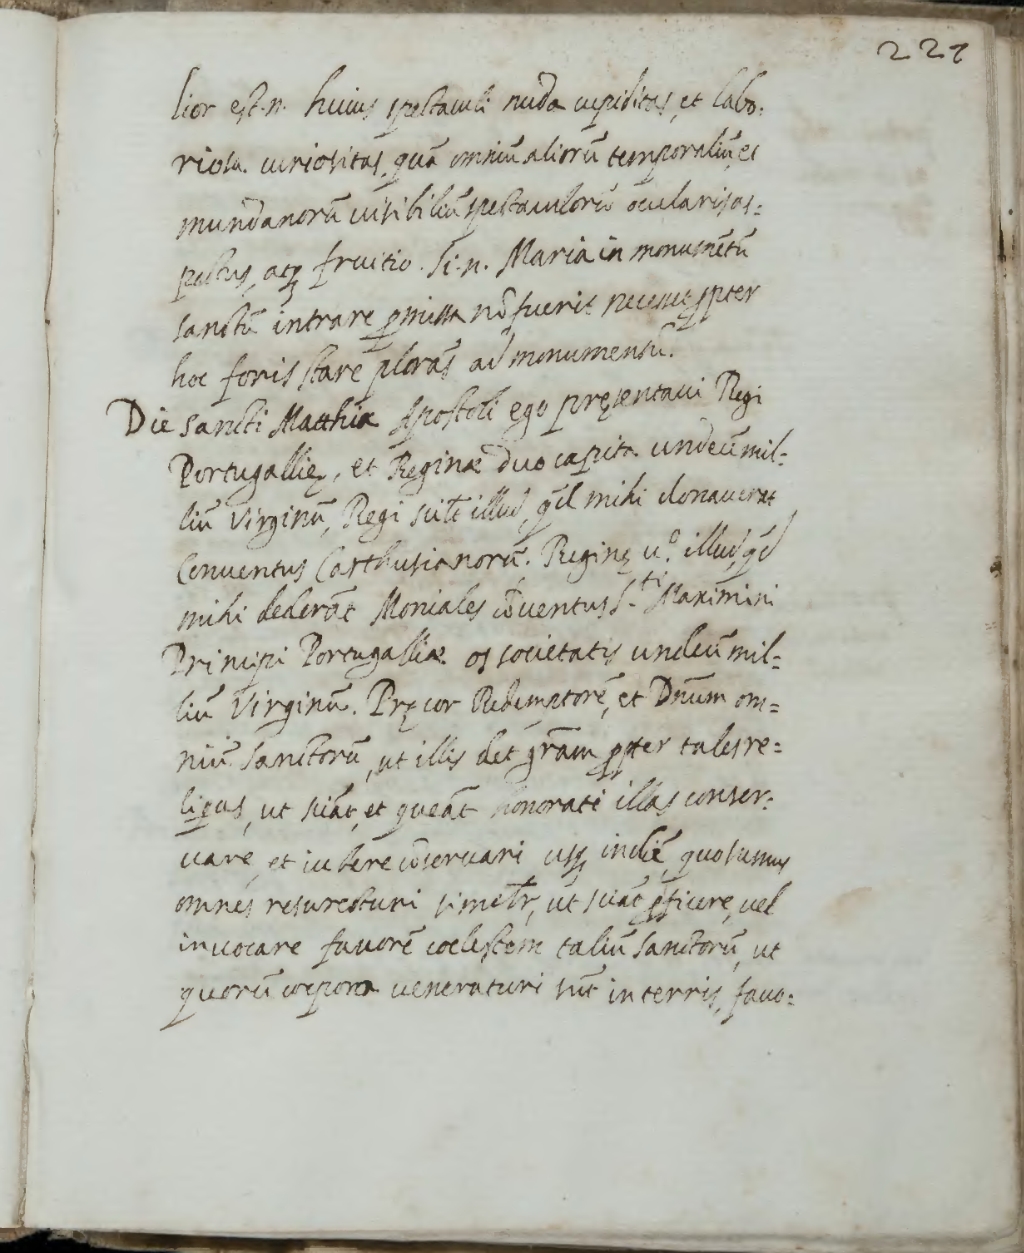 221
lior est .n. huius spectaculi nuda cupiditas, et labo-
riosa curiositas, quā omniū aliorū temporaliū, et
mundanorū uisibiliū spectaculorū ocularis as=
pectus, atq; fruitio. Si .n. Maria in monumētū
sanctū intrare ꝑmissa nō fuerit necesse ꝓpter
hoc foris stare plorās ad monumentū.
Die sancti Matthiæ Apostoli ego pręsentaui Regi
Portugallię, et Reginæ duo capita undecū mil=
liū Virginū, Regi scilt̄ illud, qd̄ mihi donauerat
Conuentus Carthusianorū. Reginę u.º illud, qd̄
mihi dederōt Moniales cōuentus S.ti Maximini
Principi Portugalliæ os societatis undecū mil=
liū Virginū. Pręcor Redemptorē, et Dn̄um om=
niū Sanctorū, ut illis det gr̄am ꝓpter tales re=
liqias, ut sciāt, et queāt honoratè illas conser-
uare, et iubere cōseruari usq; in diē, quo sumus
omnes resurecturi simelr̄, ut sciāt ꝓficere, uel
inuocare fauorē coelestem taliū Sanctorū, ut
quorū corpora ueneraturi sūt in terris, fauo=